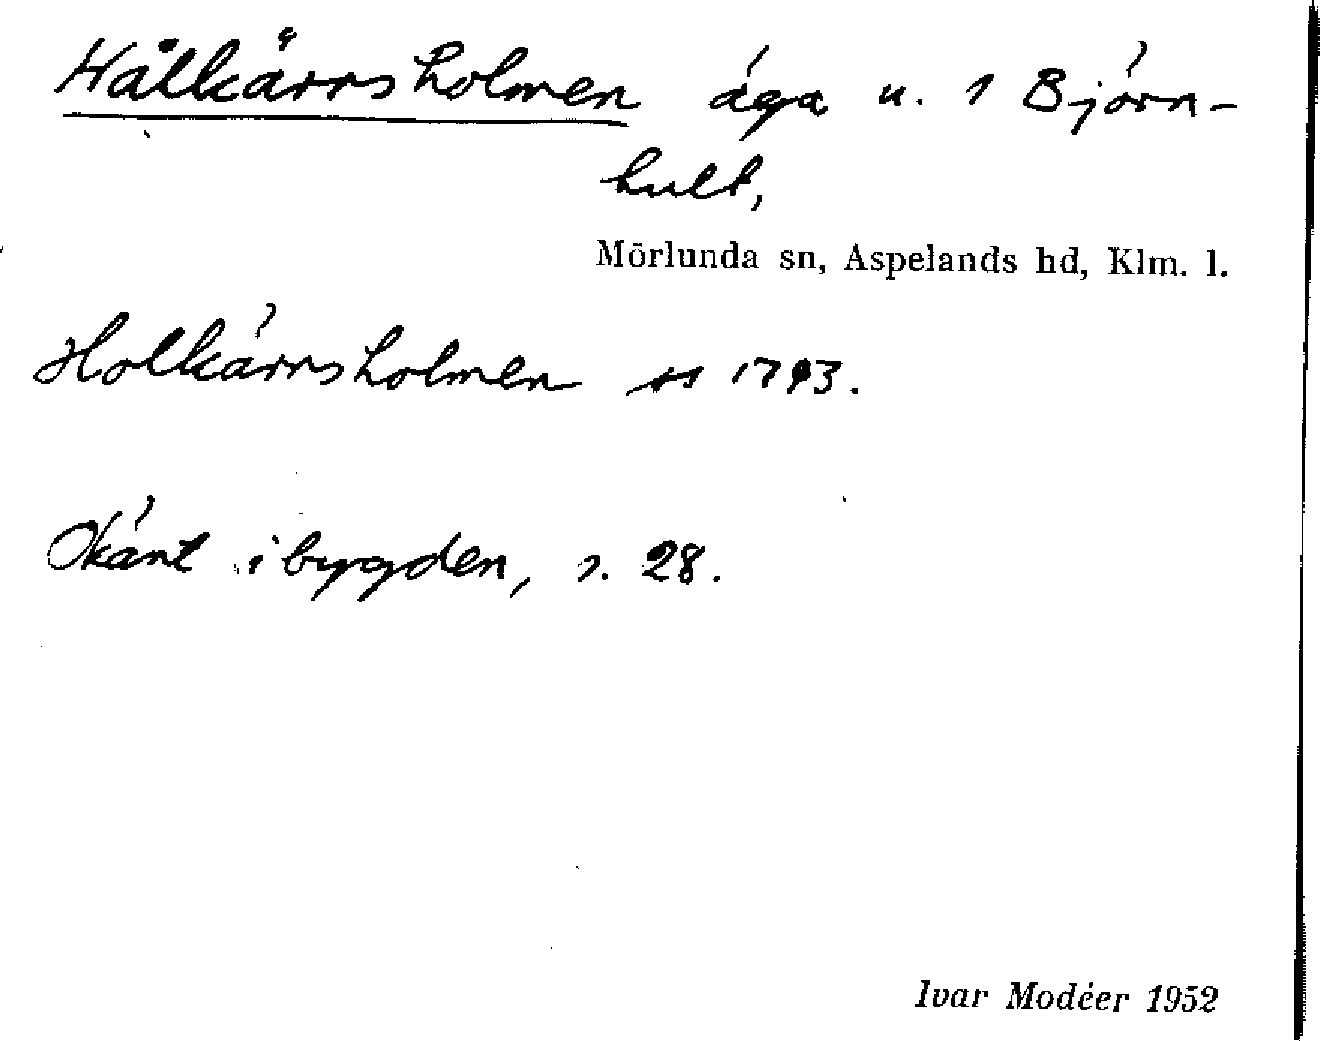 Hålkärrsholmen äga u. 1 Björn-
hult,
Mörlunda sn, Aspelands hd, Klm. l.
Holkärrsholmen ss 1793.
Okänt i bygden, s. 28.
Ivar Modéer 1952